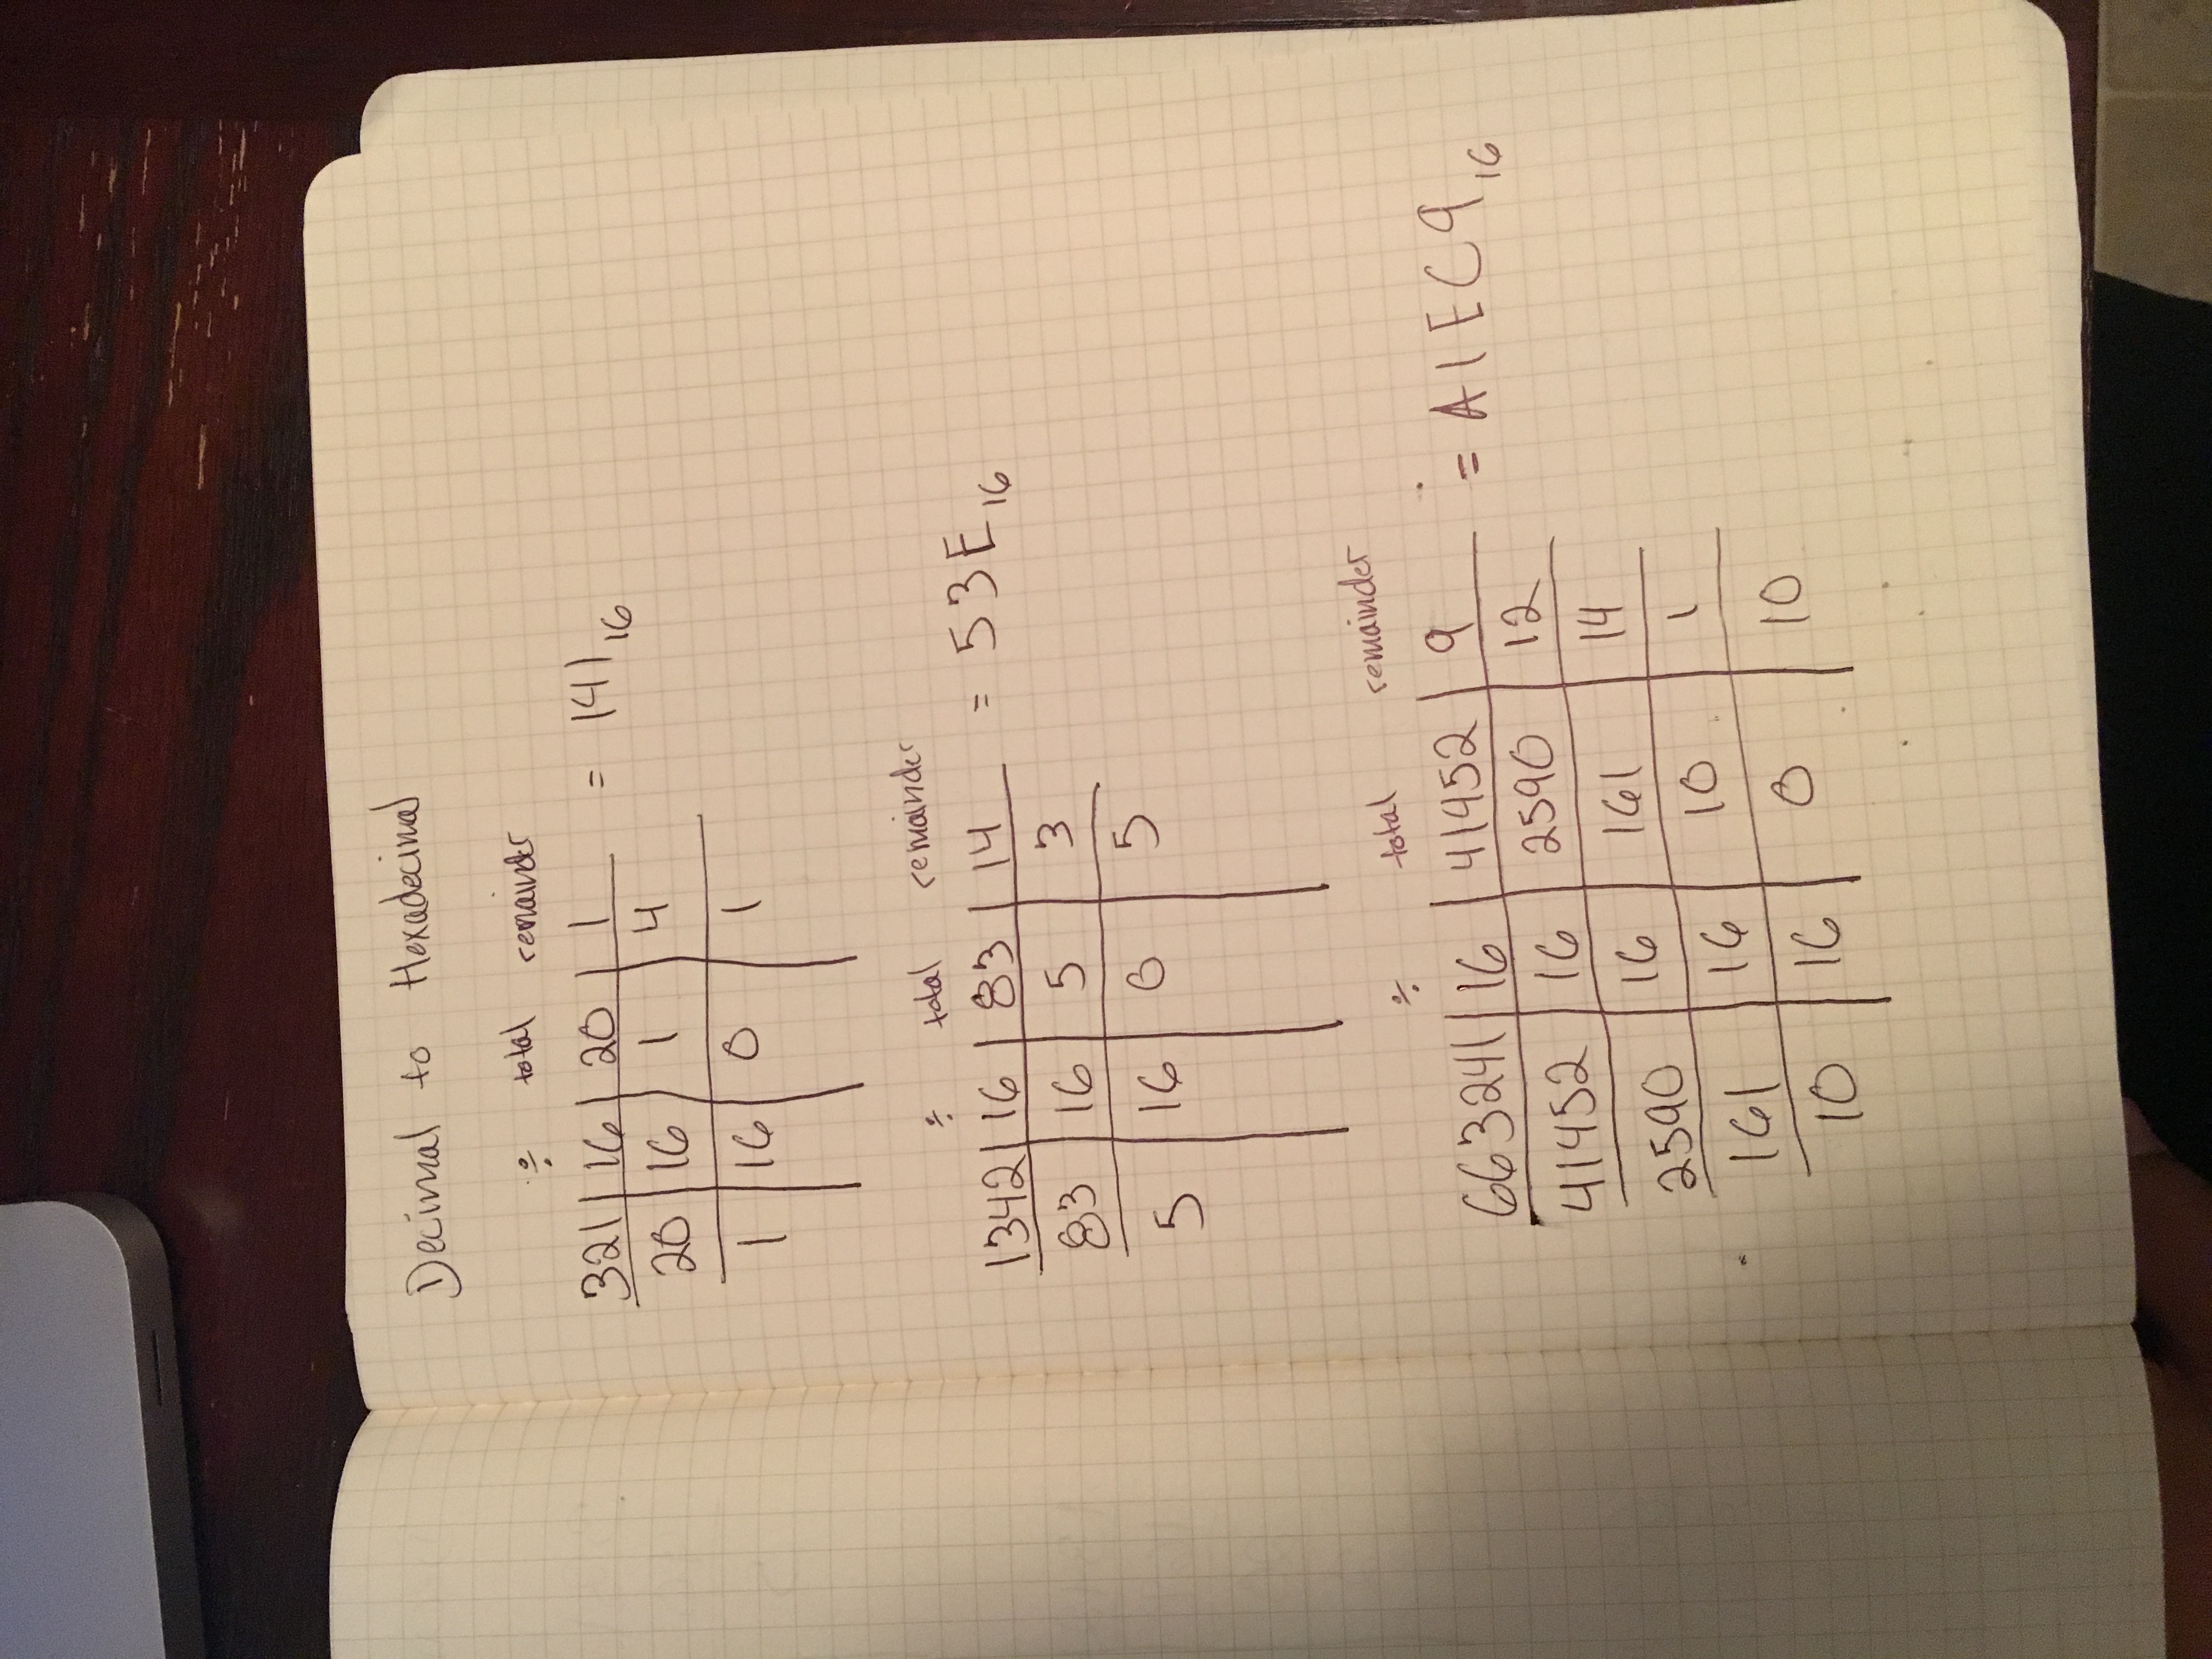 Decimal to Hexadecimal
÷ total remainder
321 16 20 1 = 141 16
20 16 1 4
1 16 0 1
÷ total remainder
1342 16 83 14 = 53E 16
83 16 5 3
5 16 0 5
÷ total remainder
663241 16 41452 9 = A1EC9 16
41452 16 2590 12
2590 16 161 14
161 16 10 1
10 16 0 10